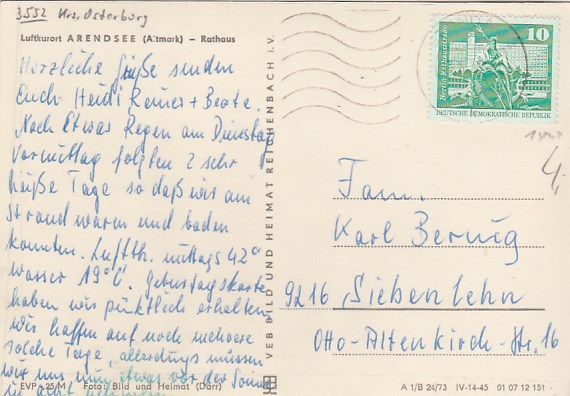 3552 Krs. Osterburg
Luftkurort ARENDSEE (Altmark) – Rathaus
Herzliche Grüße senden
Euch Heidi Reiner + Beate.
Nach Etwas Regen am Dienstag
vormittag folgten 2 sehr
heiße Tage so daß wir am
Strand waren und baden
konnten. Luftth. mittags 42°
wasser 19°C. Geburtstagskarte
haben wir pünktlich erhalten
wir hoffen auf noch mehrere
solche Tage, allerdings müssen
wir uns nun etwas vor der Sonne
in acht nehmen
EVP -,25/M Foto: Bild und Heimat (Darr)
VEB BILD UND HEIMAT REICHENBACH I. V.
10
Berlin Rathausstraße
DEUTSCHE DEMOKRATISCHE REPUBLIK
4,
Fam.
Karl Bernig
9216 Siebenlehn
Otto-Altenkirch-Str. 16
A 1/B 24/73 IV-14-45 01 07 12 151